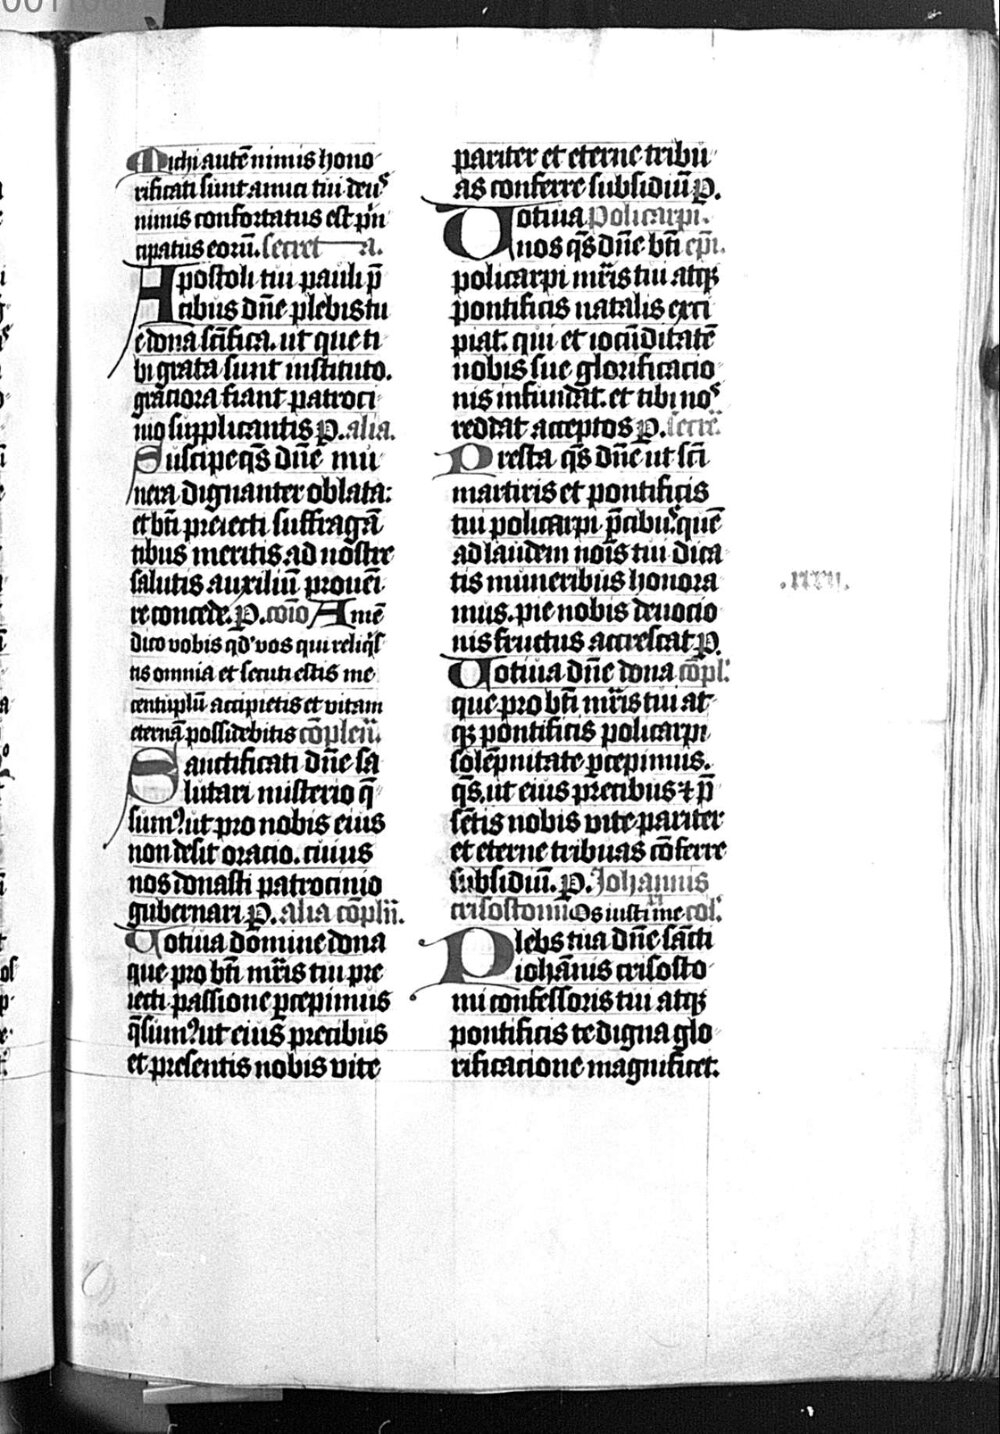 Michi autē nimis hono
rificati sunt amici tui deus
nimis confortatus est prin
cipatus eorū. secret a.
Apostoli tui pauli p̄
cibus dn̄e plebis tu
e dona sc̄ifica. ut que ti
bi grata sunt instituto.
graciora fiant patroci
nio supplicantis P. alia.
Suscipe qs̄ dn̄e mu
nera dignanter oblata:
et bt̄i preiecti suffragā
tibus meritis ad nostre
salutis auxiliū proueni
re concede. P. cōio Amē
dico vobis qd' vos qui reliq's
tis omnia et secuti estis me
centuplū accipietis et vitam
eternā possidebitis cōplen̄.
Sanctificati dn̄e sa
lutari misterio q̄
sum? ut pro nobis eius
non desit oracio. cuius
nos donasti patrocinio
gubernari P. alia cōpln̄.
Votiua domine dona
que pro bt̄i mr̄is tui pre
iecti passione p̄cepimus
q̄sum? ut eius precibus
et presentis nobis vite
pariter et eterne tribu
as conferre subsidiū P.
Votiua Policarpi.
nos qs̄ dn̄e bt̄i ep̄i.
policarpi mr̄is tui atqꝫ
pontificis natalis exci
piat. qui et iocūditatē
nobis sue glorificacio
nis infundat. et tibi nos
reddat acceptos P. secre.
Presta qs̄ dn̄e ut sc̄i
martiris et pontificis
tui policarpi p̄cibus quē
ad laudem nois̄ tui dica
tis muneribus honora
mus. pie nobis deuocio
nis fructus accrescat P.
.xxvii.
Votiua dn̄e dona cōpl.
que pro bt̄i mr̄is tui at
qꝫ pontificis policarpi
solēpnitate p̄cepimus.
qs̄. ut eius precibus ⁊ p̄
sētis nobis vite pariter
et eterne tribuas cōferre
subsidiū. P. Johannis
crisostomi Os iusti me col.
Plebs tua dn̄e sācti
iohānis crisosto
mi confessoris tui atqꝫ
pontificis te digna glo
rificacione magnificet.